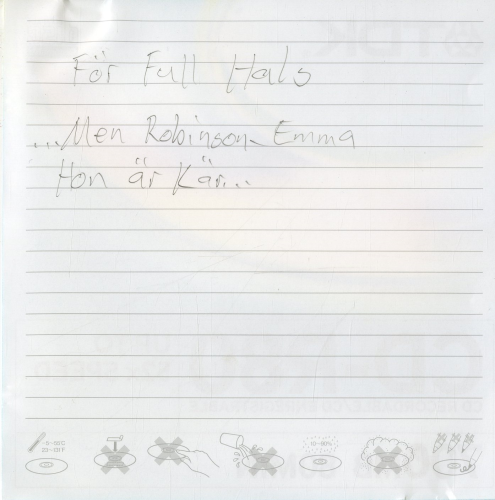 För Full Hals
...Men Robinson-Emma
Hon är Kär...
-5~55°C
23~131°F
10~80%
TDK